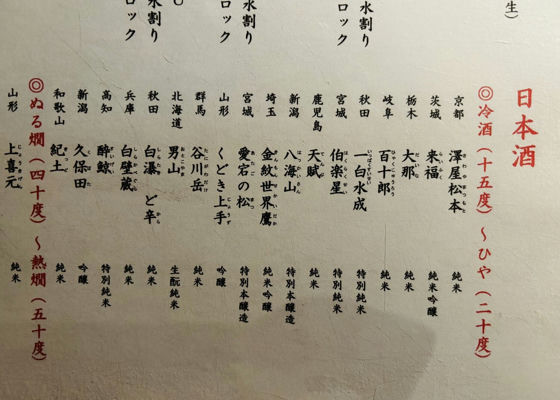 生）
水割り
ロック
水割り
ロック
水割り
ロック
日本酒
◎冷酒（十五度）〜ひや（二十度）
京都 澤屋松本 純米
茨城 来福 純米吟醸
栃木 大那 純米
岐阜 百十郎 純米
秋田 一白水成 特別純米
宮城 伯楽星 特別純米
鹿児島 天賦 純米
新潟 八海山 特別本醸造
埼玉 金紋世界鷹 純米吟醸
宮城 愛宕の松 特別本醸造
山形 くどき上手 吟醸
群馬 谷川岳 純米
北海道 男山 生酛純米
秋田 白瀑 ど辛 純米
兵庫 白壁蔵 純米
高知 酔鯨 特別純米
新潟 久保田 吟醸
和歌山 紀土 純米
◎ぬる燗（四十度）〜熱燗（五十度）
山形 上喜元 純米